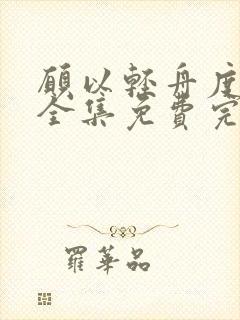 願以輕舟度
全集免費完
羅華品